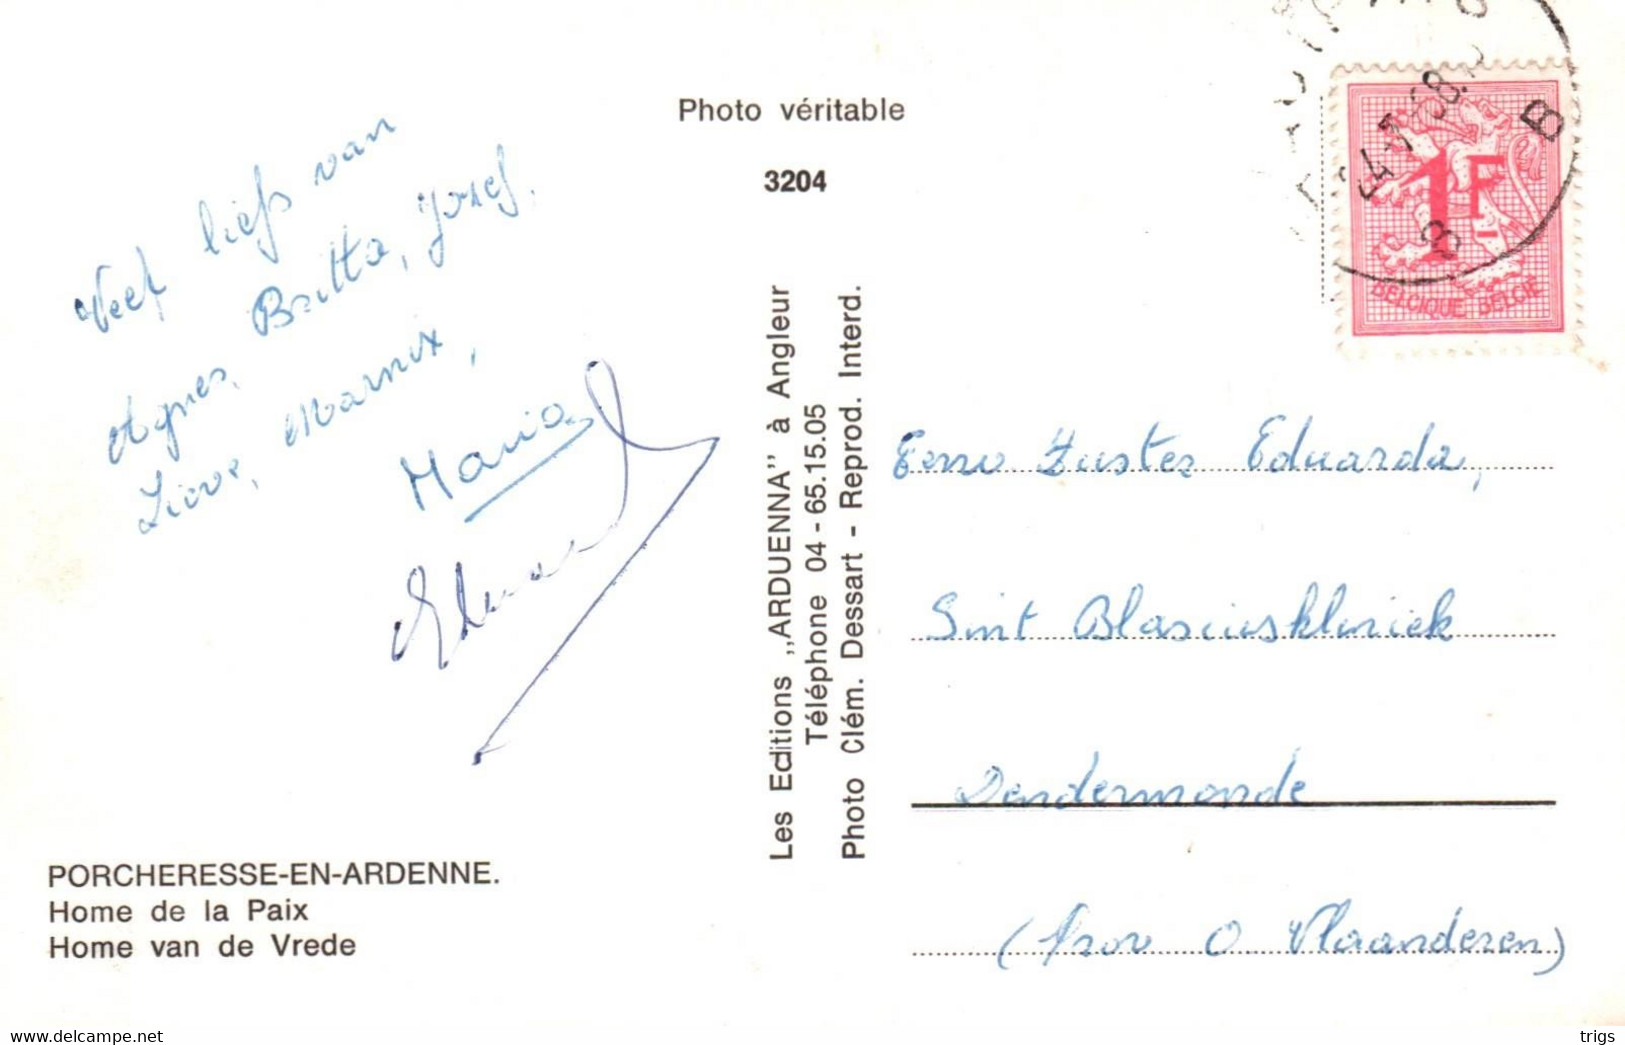 Photo véritable
3204
Veel liefs van
Agnes, Britta, Jozef,
Lieve, Marnix,
Maria
Eduard
PORCHERESSE-EN-ARDENNE.
Home de la Paix
Home van de Vrede
Les Editions ,,ARDUENNA'' à Angleur
Téléphone 04 - 65.15.05
Photo Clém. Dessart - Reprod. Interd.
1F
BELGIQUE BELGIË
B
8
Eerw Zuster Eduarda,
Sint Blasiuskliniek
Dendermonde
(Prov O. Vlaanderen)
www.delcampe.net
trigs